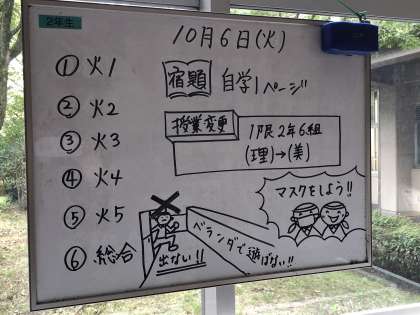 2年生
10月6日(火)
① 火1
② 火2
③ 火3
④ 火4
⑤ 火5
⑥ 総合
宿題 自学1ページ
授業変更
1限2年6組
(理)→(美)
マスクをしよう!!
出ない!!
ベランダで遊ばない!!